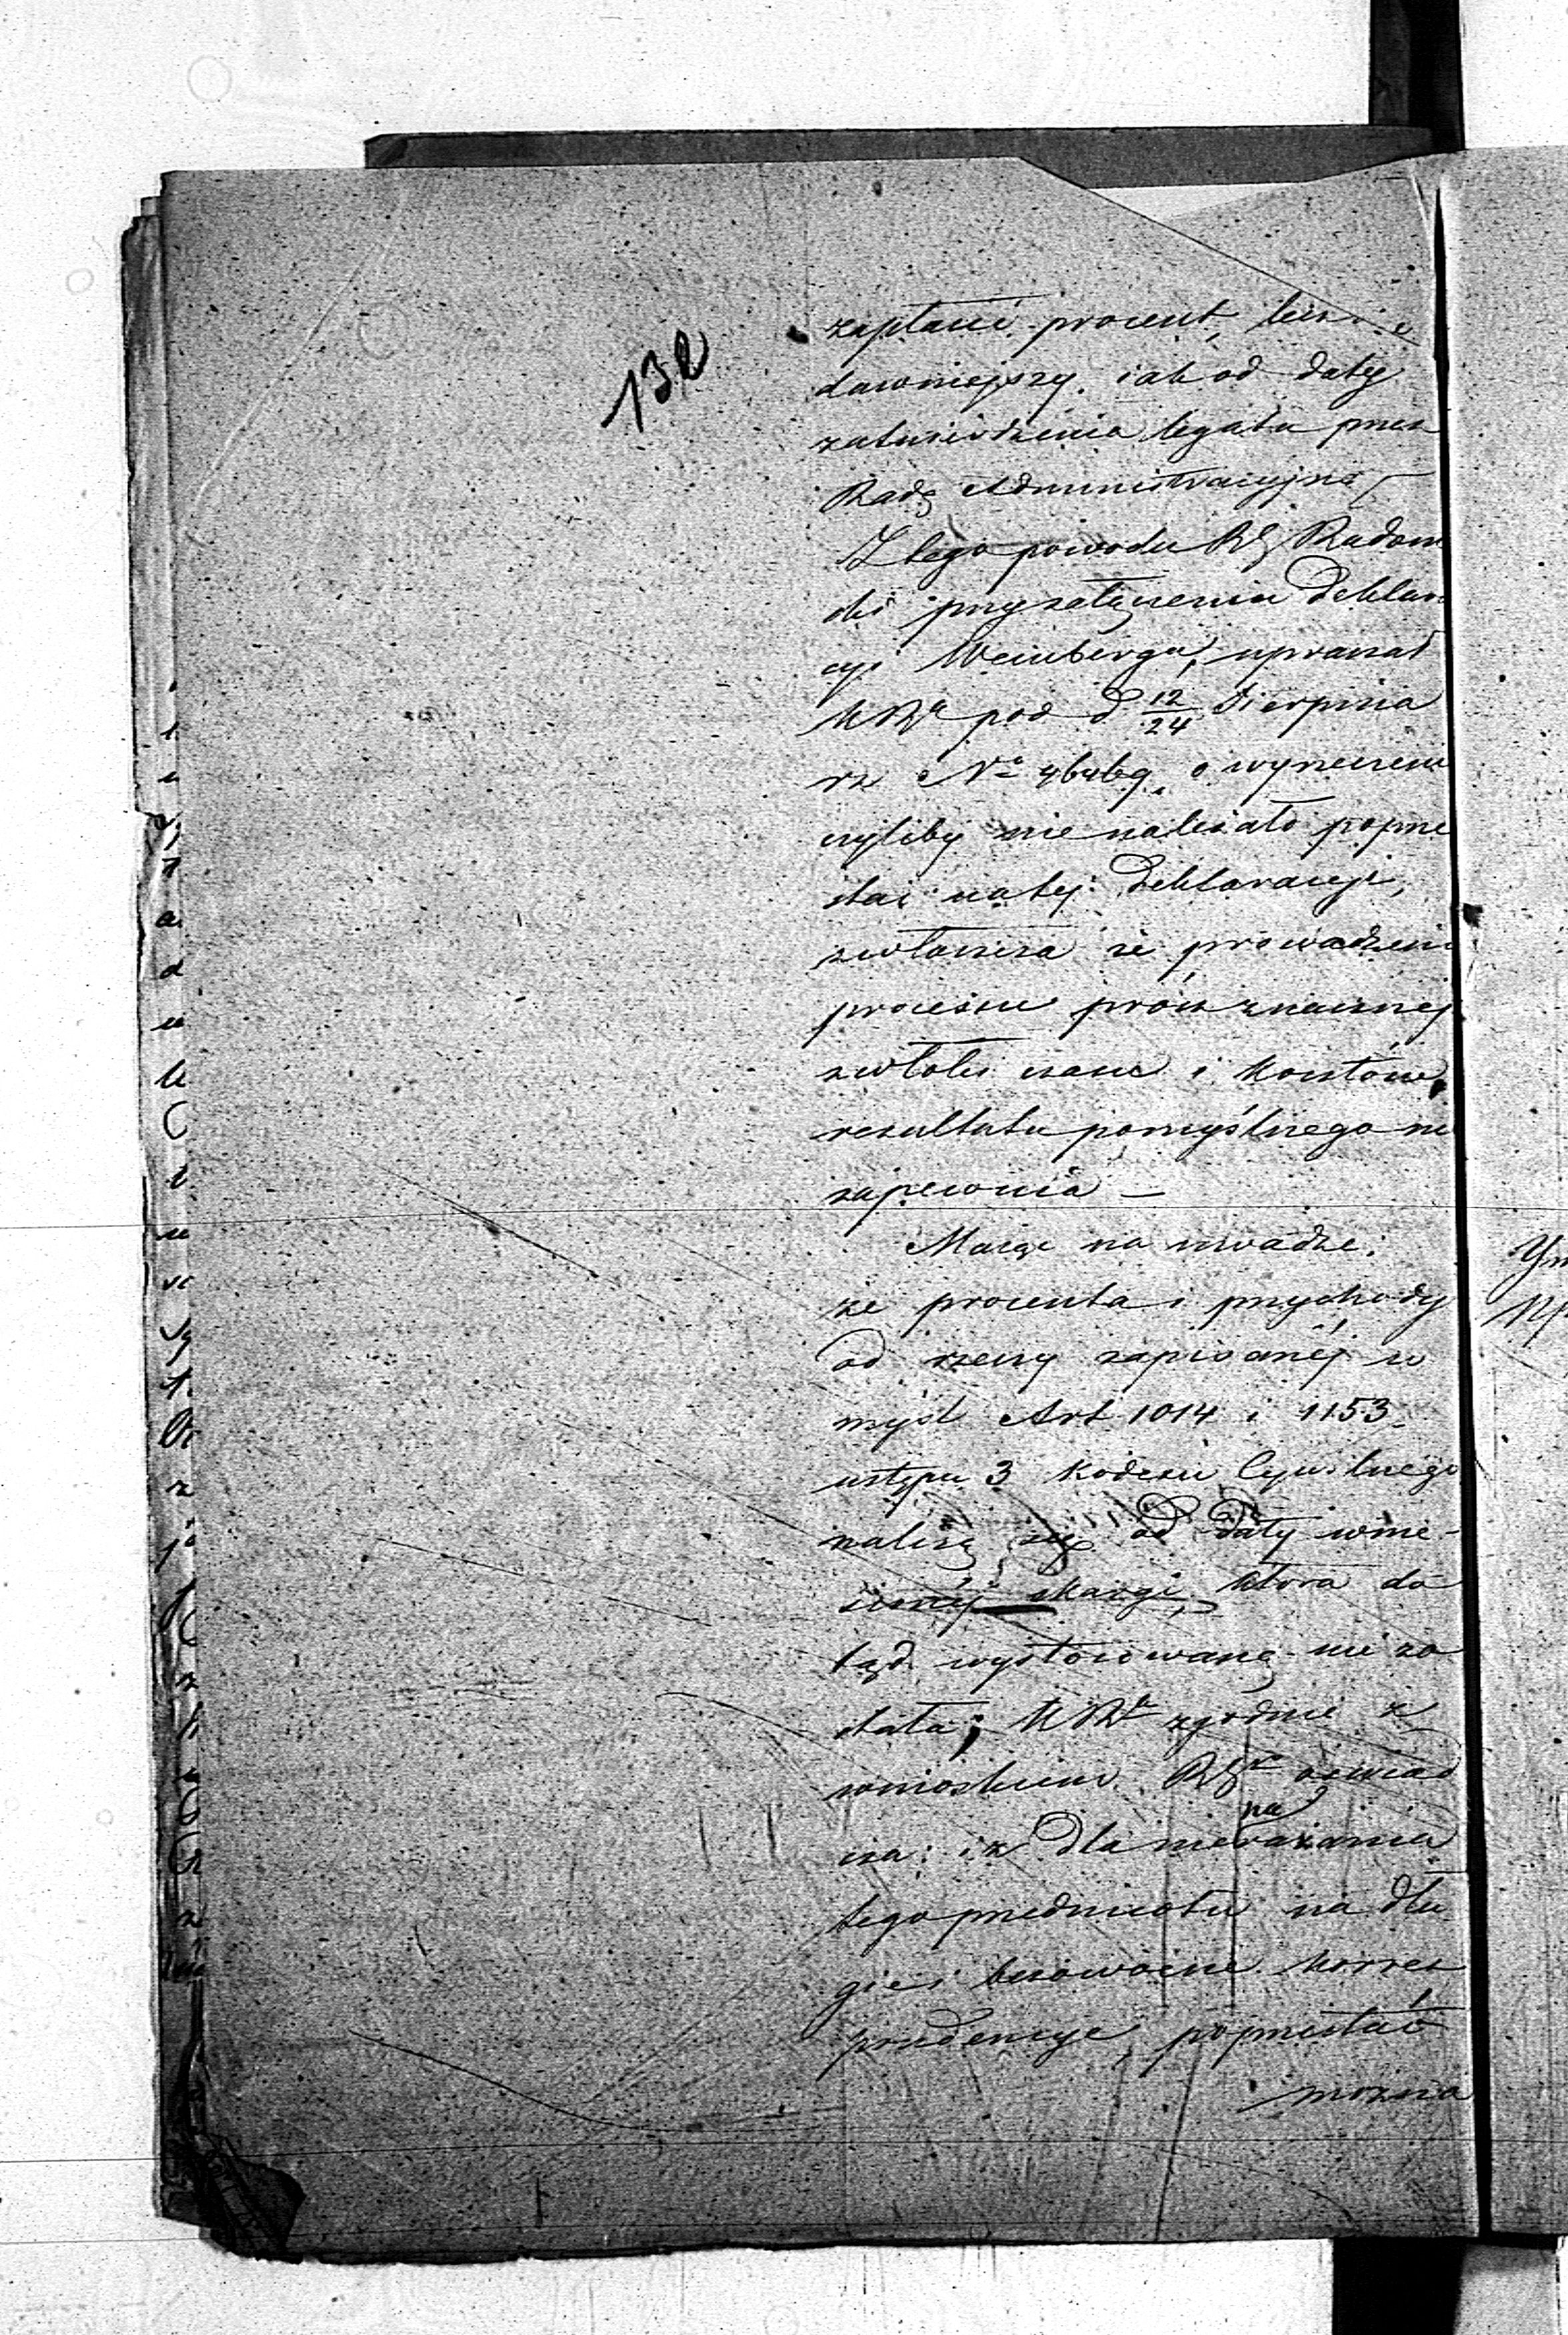 132
zapłacić procent, lecz nie
dawniejszy iak od daty
zatwierdzenia legatu przez
Radę Administracyjną
Z tego powodu RG Radom
ski przy załączeniu Deklara
cyi Weinberga, upraszał
KRz pod d 12/24 Sierpnia
rz No o wyrzeczeni
czyliby nie należało poprze
stać na tej Deklaracyi,
zwłaszcza że prowadzeni
processu prócz znacznej
zwłoki czasu i kosztów
rezultatu pomyślnego nie
zapewnia —
Mając na uwadze,
że procenta i przychody
od rzeczy zapisanéj w
myśl Art 1014 i 1153
ustępu 3 Kodexu Cywilnego
należą się od daty wnie-
sionéj skargi, która do
tąd wystosowaną nie zo
stała; KRz zgodnie z
wnioskiem RG oświad
cza: iż dla nienarażania
tego przedmiotu na dłu
gie i bezowocne korres
pondencye, poprzestać
można